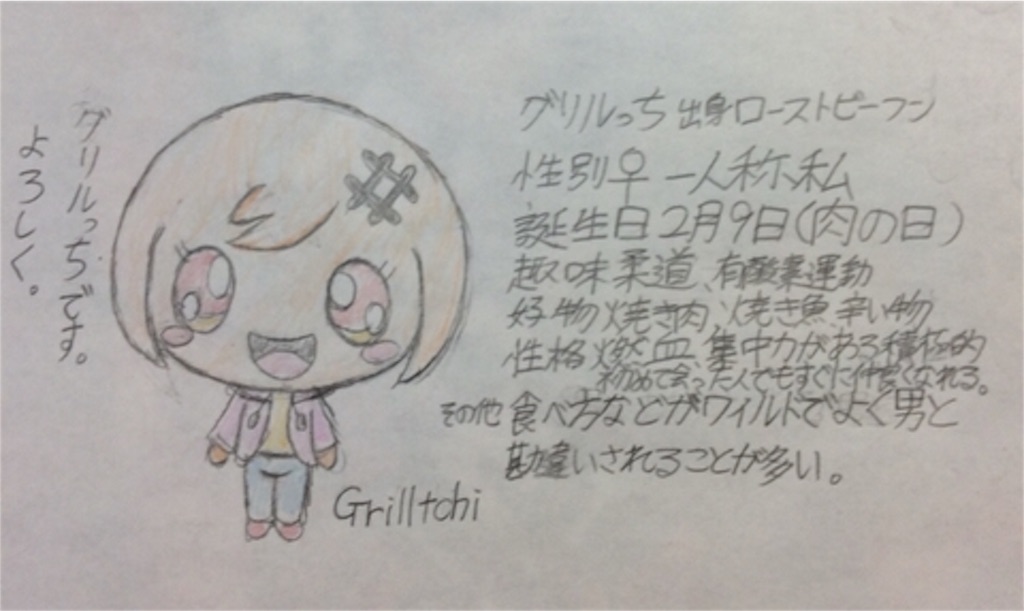 グリルっちです。
よろしく。
グリルっち 出身ローストビーフン
性別♀ 一人称、私
誕生日2月9日(肉の日)
趣味 柔道、有酸素運動
好物 焼き肉、焼き魚、辛い物
性格 燃血、集中力がある積極的
初めて会った人でもすぐに仲良くなれる。
その他 食べ方などがワイルドでよく男と
勘違いされることが多い。
Grilltchi